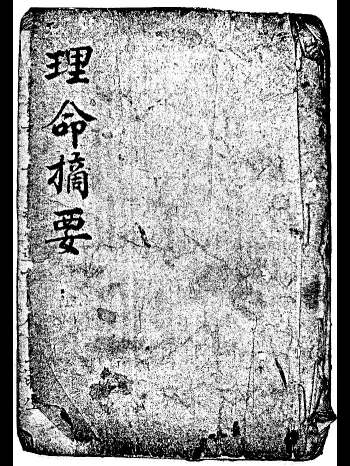 理命摘要